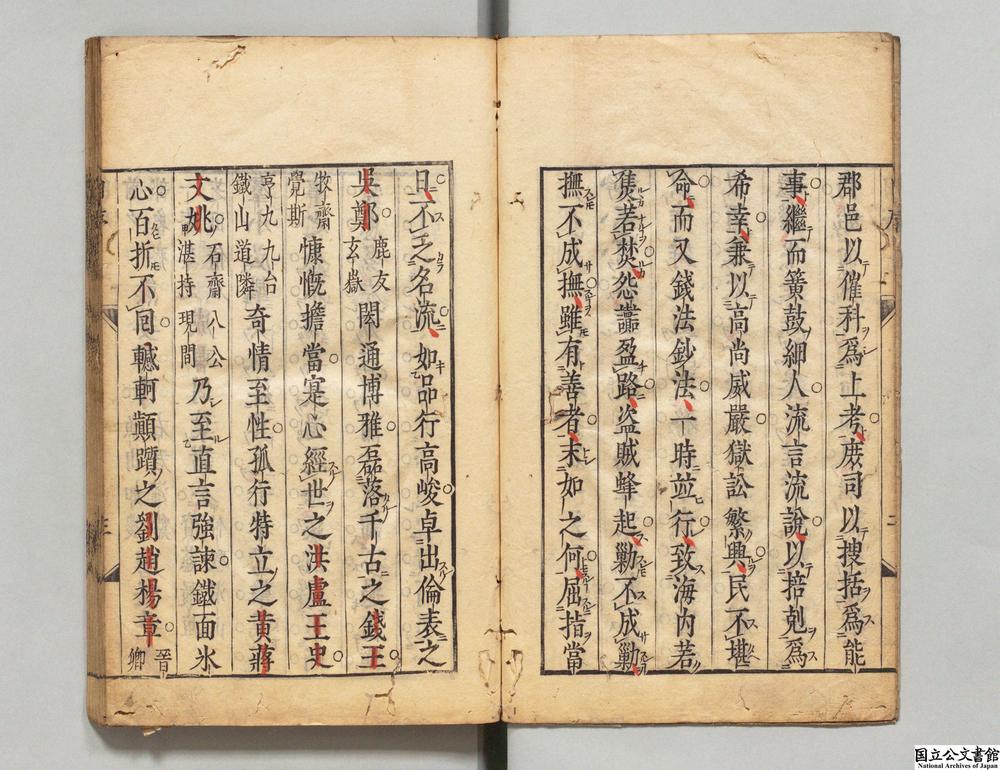 郡邑以催科爲上考庶司以搜括爲能
事繼而簧鼓細人流言流說以掊剋爲
希幸兼以高尚威嚴獄訟繁興民不堪
命而又錢法鈔法一時並行致海內若
焚怨讟盈路盗賊蜂起勦不成勦
撫不成撫雖有善者末如之何屈指當
旦不乏名流如品行高峻卓出倫表之
吳鄭鹿友玄嶽閎通博雅磊落千古之錢王
牧齋覺斯慷慨擔當寔心經世之洪盧王史
亨九九台鐵山道隣奇情至性孤行特立之黄蔣
石齋八公文姚湛持現聞乃至直言強諫鐵面氷
心百折不囘轗軻顛躓之劉趙楊章晉卿
国立公文書館
National Archives of Japan